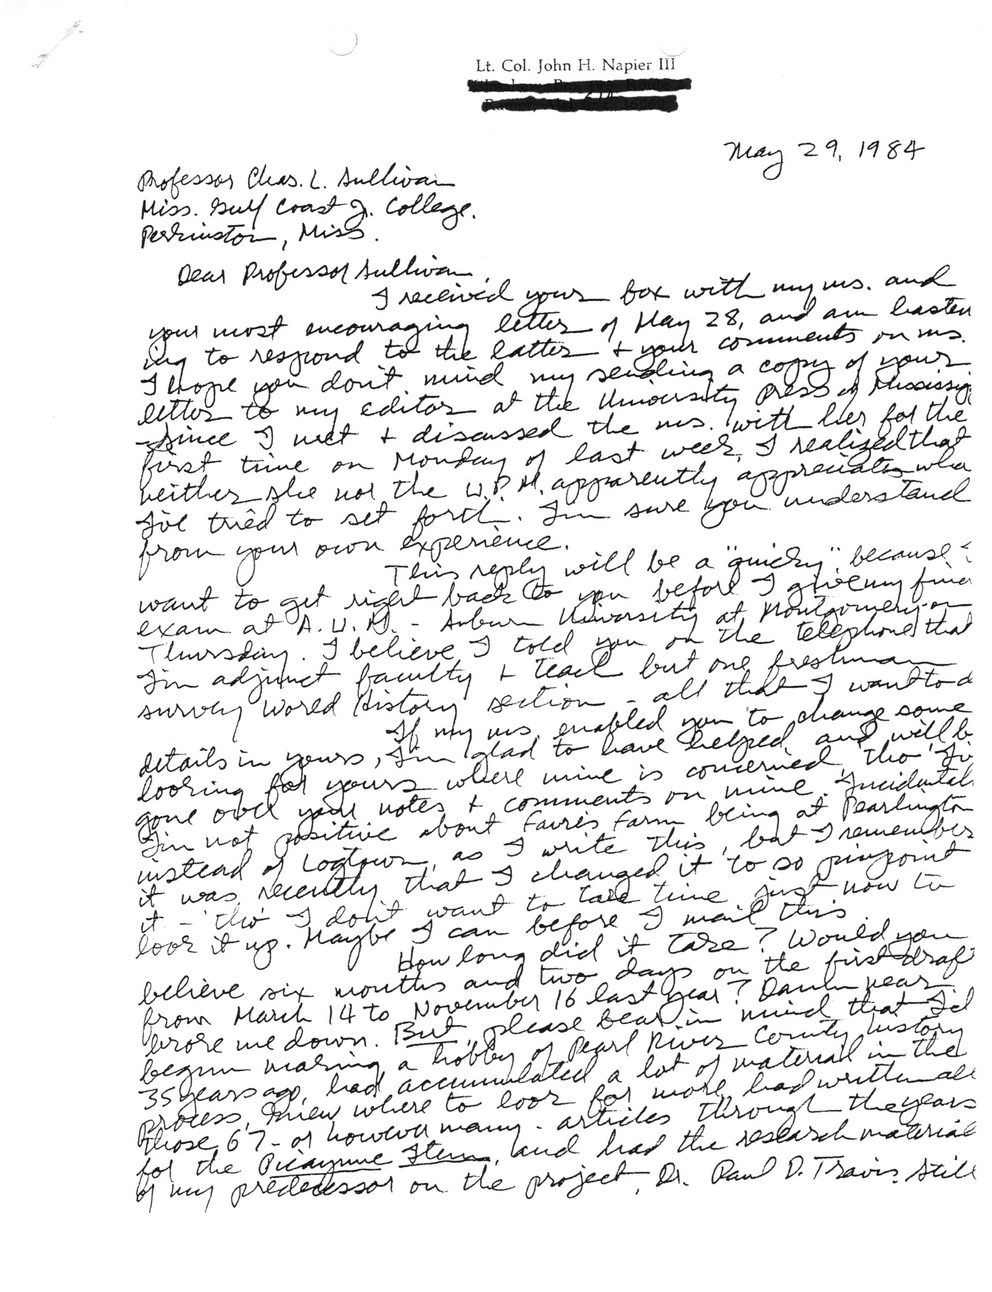 Lt. Col. John H. Napier III
May 29, 1984
Professor Chas. L. Sullivan
Miss. Gulf Coast J. College.
Perkinston, Miss.
Dear Professor Sullivan,
I received your box with my ms. and
your most encouraging letter of May 28, and am hasten
ing to respond to the latter + your comments on ms.
I hope you don't mind my sending a copy of your
letter to my editor at the University Press of Mississip
- since I met + discussed the ms. with her for the
first time on Monday of last week, I realized that
neither she nor the U.P.M. apparently appreciates wha
I've tried to set forth. I'm sure you understand
from your own experience.
This reply will be a "quicky", because I
want to get right back to you before I give my final
exam at A.U.M. - Auburn University at Montgomery on
Thursday. I believe I told you on the telephone that
I'm adjunct faculty + teach but one freshman
survey World History section - all that I want to d
If my ms. enabled you to change some
details in yours, I'm glad to have helped, and will b
looking for yours where mine is concerned, tho' I'v
gone over your notes + comments on mine. Incidental
I'm not positive about Favre's Farm being at Pearlington
instead of Logtown, as I write this, but I remember
it was recently that I changed it to so pinpoint
it - tho' I don't want to take time just now to
look it up. Maybe I can before I mail this.
How long did it take? Would you
believe six months and two days on the first draft
from March 14 to November 16 last year? Damn near
wrote me down. But, please bear in mind that I'd
begun making a hobby of Pearl River County history
35 years ago, had accumulated a lot of material in the
process, knew where to look for more, had written all
those 67 - or however many - articles through the years
for the Picayune Item, and had the research material
of my predecessor on the project, Dr. Paul D. Travis. Still